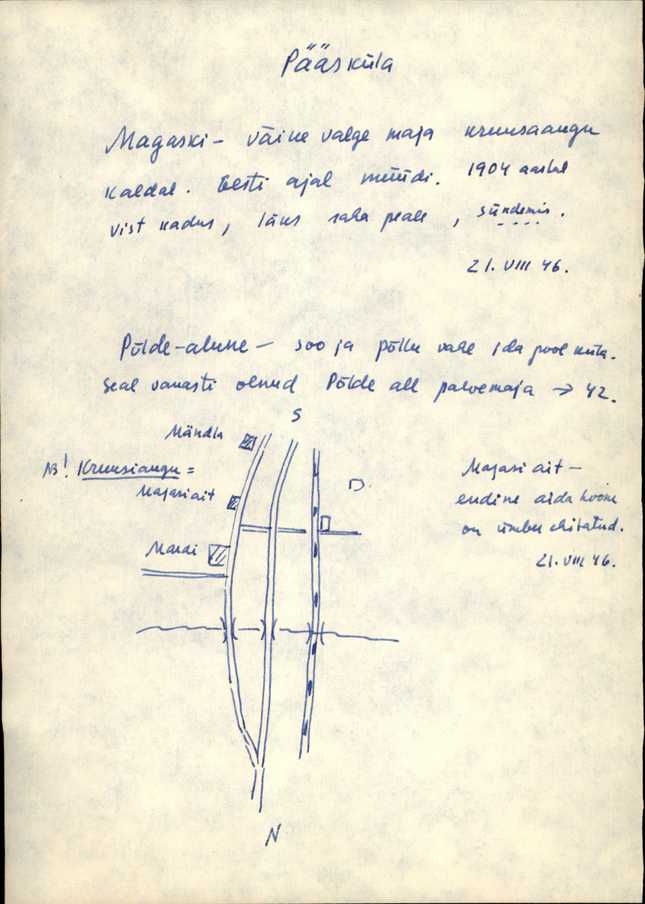 Pääsküla
Magaski - väike valge maja kruusaaugu
kaldal. Eesti ajal müüdi. 1904 aastal
vist kadus, läks raha peale, sündemis.
21. VIII 46.
Põlde-alune - soo ja põllu vahe ida pool küla.
Seal vanasti olnud Põlde all palvemaja → 42.
S
Mändla
NB! Kruusiaugu =
Magasiait
Mardi
Magasi ait -
endine aida hoone
on ümber ehitatud.
21. VIII 46.
N